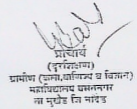 प्राचार्य
(दुरशिक्षण)
ग्रामीण (कला, वाणिज्य व विज्ञान)
महाविद्यालय वसंतनगर
ता मुखेड जि नांदेड